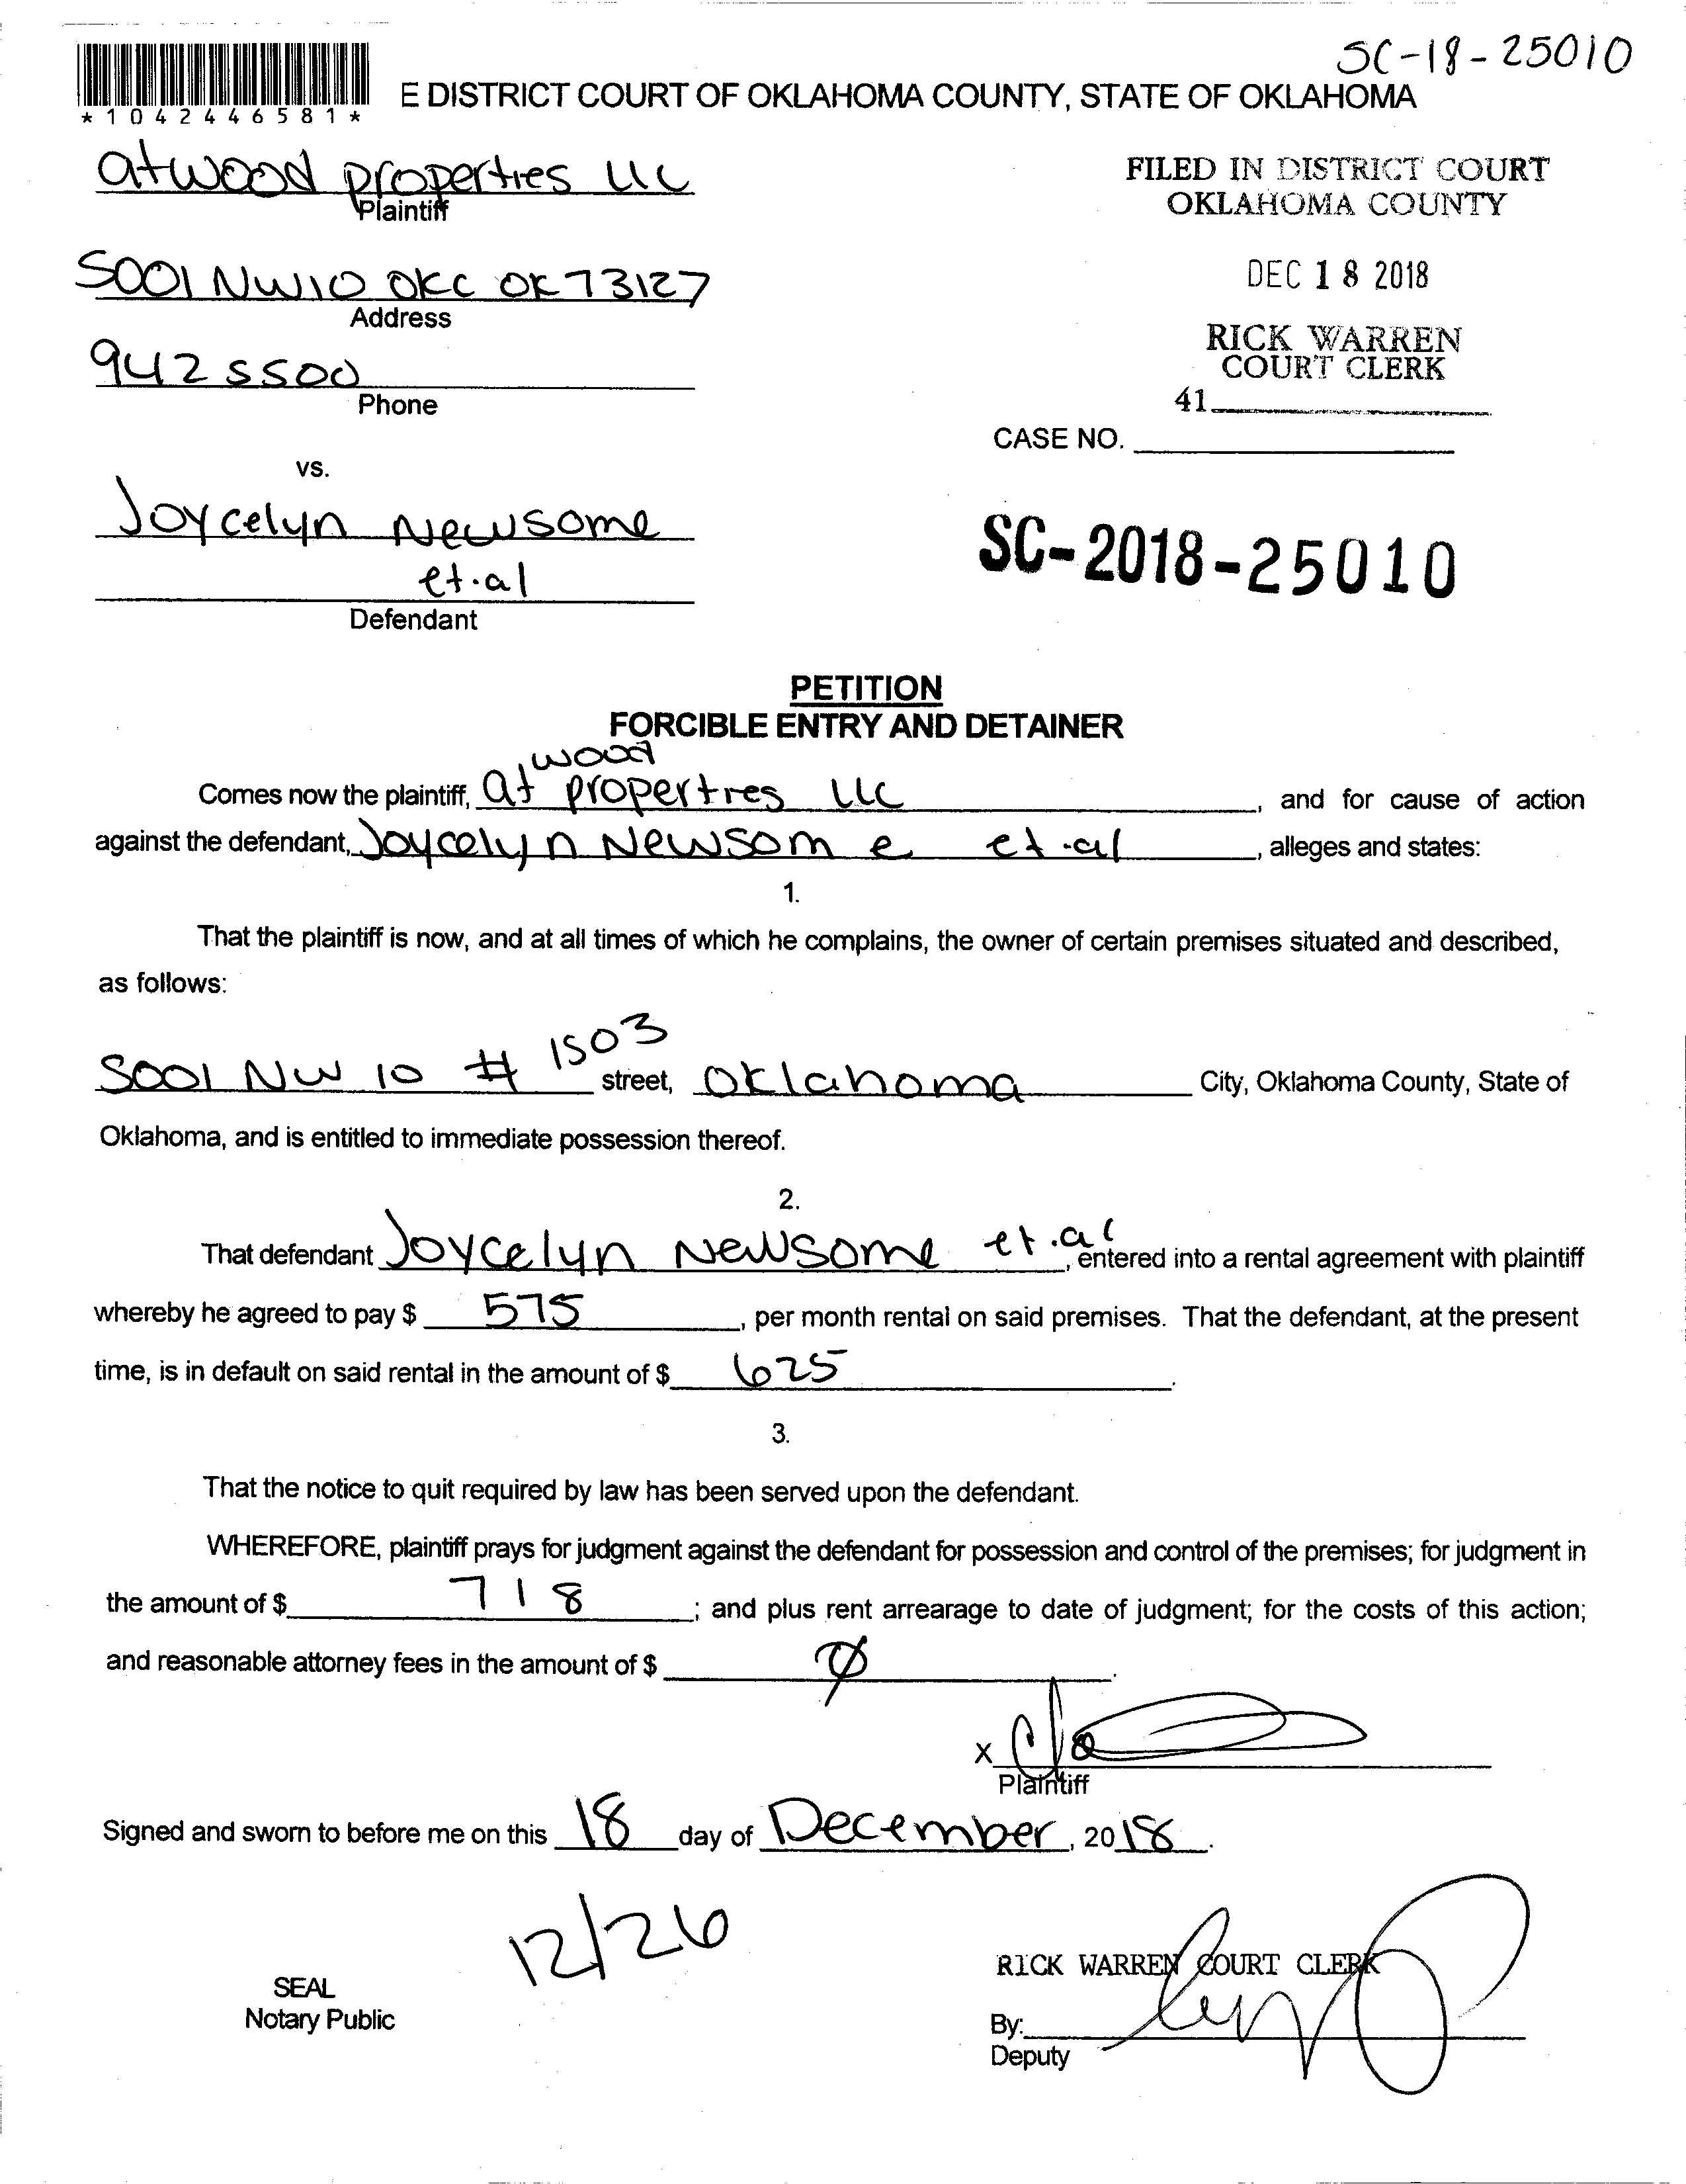 SC-18-25010
*1042446581*
E DISTRICT COURT OF OKLAHOMA COUNTY, STATE OF OKLAHOMA
atwood properties llc
Plaintiff
FILED IN DISTRICT COURT
OKLAHOMA COUNTY
5001 NW10 OKC OK 73127
Address
DEC 18 2018
942 5500
Phone
RICK WARREN
COURT CLERK
41
CASE NO.
vs.
Joycelyn Newsome
et.al
Defendant
SC-2018-25010
PETITION
FORCIBLE ENTRY AND DETAINER
wood
Comes now the plaintiff, at properties llc, and for cause of action
against the defendant, Joycelyn Newsome et.al, alleges and states:
1.
That the plaintiff is now, and at all times of which he complains, the owner of certain premises situated and described,
as follows:
5001 NW 10 # 1503 street, Oklahoma City, Oklahoma County, State of
Oklahoma, and is entitled to immediate possession thereof.
2.
That defendant Joycelyn Newsome et.al, entered into a rental agreement with plaintiff
whereby he agreed to pay $ 575, per month rental on said premises. That the defendant, at the present
time, is in default on said rental in the amount of $ 625.
3.
That the notice to quit required by law has been served upon the defendant.
WHEREFORE, plaintiff prays for judgment against the defendant for possession and control of the premises; for judgment in
the amount of $ 718; and plus rent arrearage to date of judgment; for the costs of this action;
and reasonable attorney fees in the amount of $ Ø.
X
Plaintiff
Signed and sworn to before me on this 18 day of December, 2018.
12/26
SEAL
Notary Public
RICK WARREN COURT CLERK
By:
Deputy